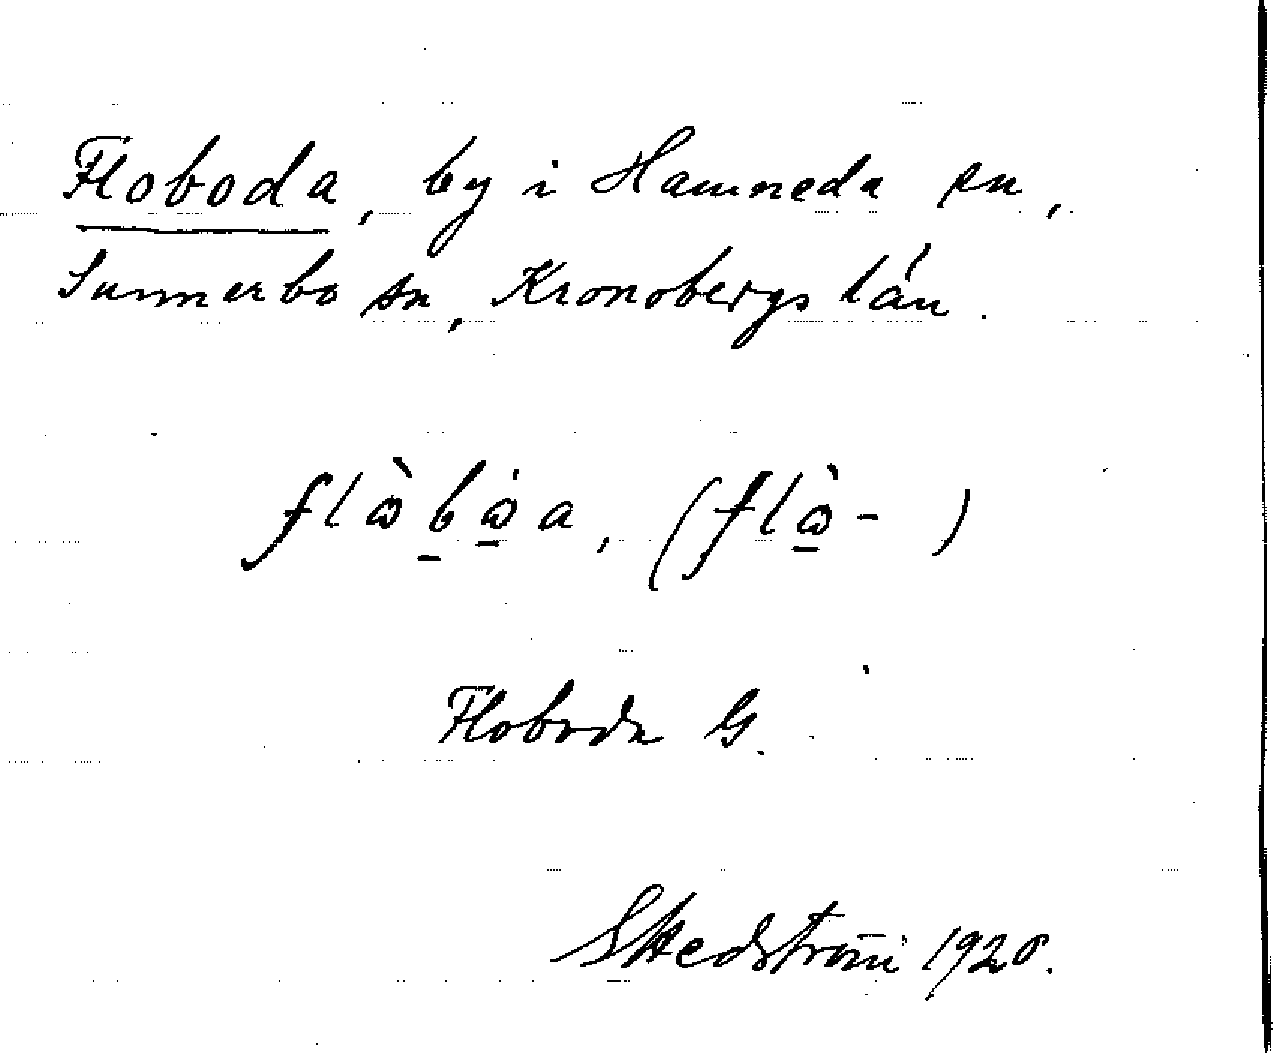 Floboda, by i Hamneda sn,
Sunnerbo sn, Kronobergs län.
flὼbω̇a, (flὼ-)
Floboda G.
S Hedström 1920.